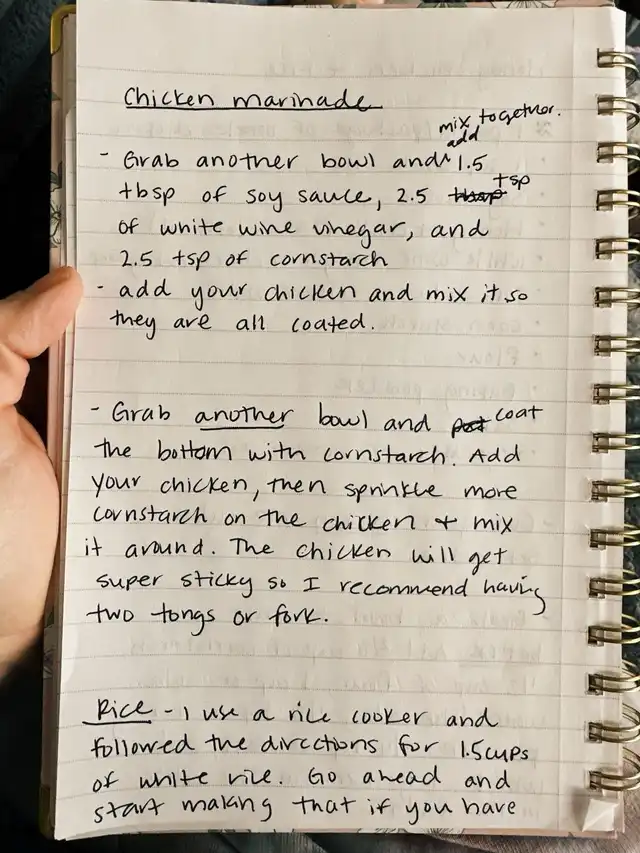 Chicken marinade
mix together.
add
- Grab another bowl and 1.5
tbsp of soy sauce, 2.5 tbsp tsp
of white wine vinegar, and
2.5 tsp of cornstarch
- add your chicken and mix it so
they are all coated.
- Grab another bowl and put coat
the bottom with cornstarch. Add
your chicken, then sprinkle more
cornstarch on the chicken + mix
it around. The chicken will get
super sticky so I recommend having
two tongs or fork.
Rice - I use a rice cooker and
followed the directions for 1.5cups
of white rice. Go ahead and
start making that if you have